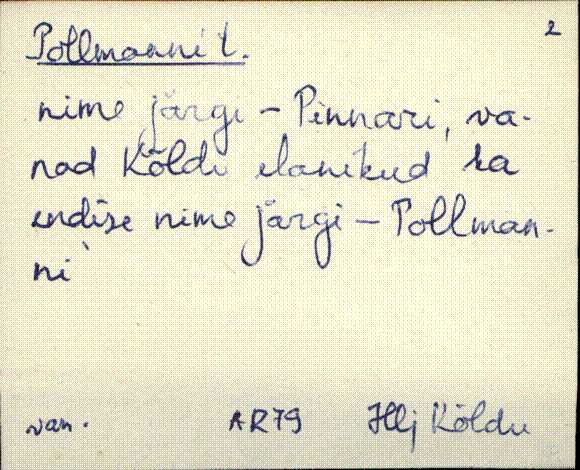 2
Pollmanni t.
nime järgi – Pinnari, va-
nad Kõldu elanikud ka
endise nime järgi – Pollman-
ni
van. AR79 Hlj Kõldu